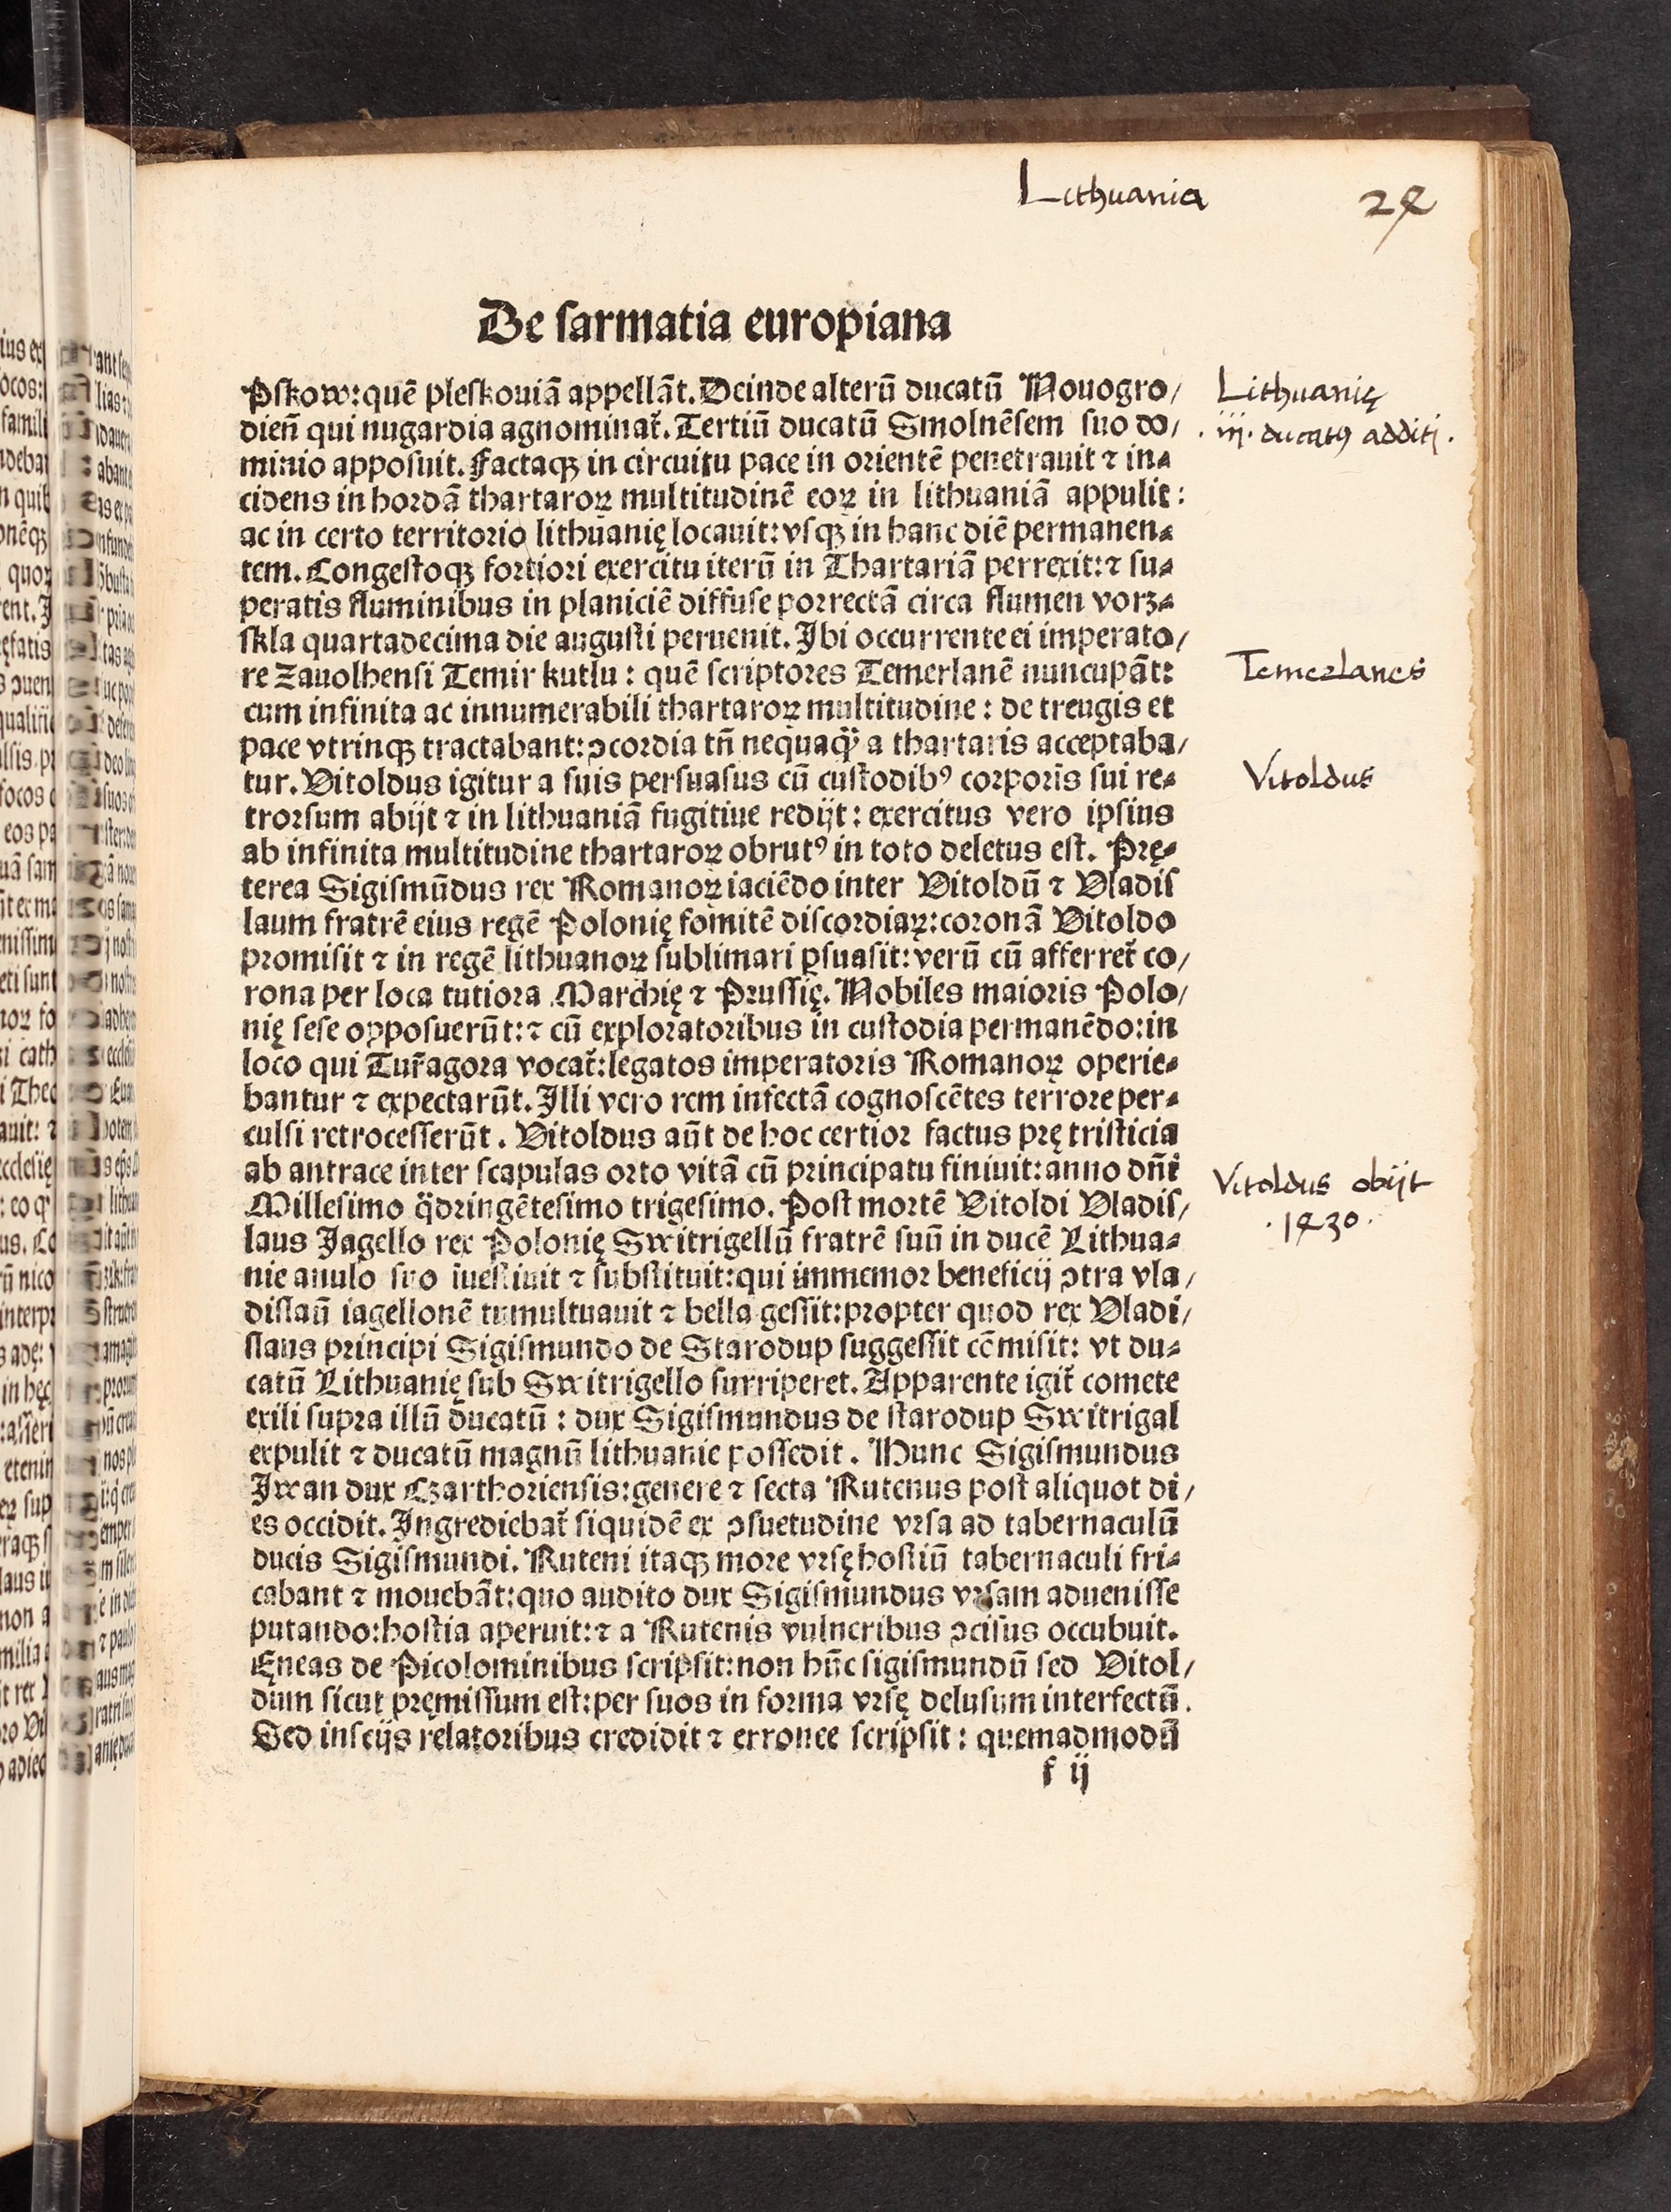 Lithuania 24
De sarmatia europiana
Pskow: quē pleskouiā appellāt. Deinde alterū ducatū Nouogro/
dieñ qui nugardia agnominat᷑. Tertiū ducatū Smolnēsem suo do/
minio apposuit. Factaqꝫ in circuitu pace in orientē penetrauit ⁊ in⸗
cidens in hordā thartaroꝝ multitudinē eoꝝ in lithuaniā appulit:
ac in certo territorio lithuanię locauit: vsqꝫ in hanc diē permanen⸗
tem. Congestoqꝫ fortiori exercitu iterū in Thartariā perrexit: ⁊ su⸗
peratis fluminibus in planiciē diffuse porrectā circa flumen vorz⸗
skla quartadecima die augusti peruenit. Ibi occurrente ei imperato/
re Zauolhensi Temir kutlu: quē scriptores Temerlanē nuncupāt:
cum infinita ac innumerabili thartaroꝝ multitudine: de treugis et
pace vtrinqꝫ tractabant: ꝯcordia tñ nequaqᷓꝫ a thartaris acceptaba/
tur. Vitoldus igitur a suis persuasus cū custodibꝰ corporis sui re⸗
trorsum abijt ⁊ in lithuaniā fugitiue redijt: exercitus vero ipsius
ab infinita multitudine thartaroꝝ obrutꝰ in toto deletus est. Prę⸗
terea Sigismūdus rex Romanoꝝ iaciēdo inter Vitoldū ⁊ Vladis
laum fratrē eius regē Polonię fomitē discordiaꝝ: coronā Vitoldo
promisit ⁊ in regē lithuanoꝝ sublimari ꝑsuasit: verū cū afferret᷑ co/
rona per loca tutiora Marchię ⁊ Prussię. Nobiles maioris Polo/
nię sese opposuerūt: ⁊ cū exploratoribus in custodia permanēdo: in
loco qui Tur᷑agora vocat᷑: legatos imperatoris Romanoꝝ operie⸗
bantur ⁊ expectarūt. Illi vero rem infectā cognoscētes terrore per⸗
culsi retrocesserūt. Vitoldus aūt de hoc certior factus prę tristicia
ab antrace inter scapulas orto vitā cū principatu finiuit: anno dñi
Millesimo q̈dringētesimo trigesimo. Post mortē Vitoldi Vladis/
laus Jagello rex Polonię Switrigellū fratrē suū in ducē Lithua⸗
nie anulo suo īuestiuit ⁊ substituit: qui immemor beneficij ꝯtra vla/
dislaū iagellonē tumultuauit ⁊ bella gessit: propter quod rex Vladi/
slaus principi Sigismundo de Starodup suggessit cōmisit: vt du⸗
catū Lithuanię sub Switrigello surriperet. Apparente igit᷑ comete
exili supra illū ducatū: dux Sigismundus de starodup Switrigal
expulit ⁊ ducatū magnū lithuanie possedit. Hunc Sigismundus
Iwan dux Czarthoriensis: genere ⁊ secta Rutenus post aliquot di/
es occidit. Ingrediebat᷑ siquidē ex ꝯsuetudine vrsa ad tabernaculū
ducis Sigismundi. Ruteni itaqꝫ more vrsę hostiū tabernaculi fri⸗
cabant ⁊ mouebāt: quo audito dux Sigismundus vrsam aduenisse
putando: hostia aperuit: ⁊ a Rutenis vulneribus ꝯcisus occubuit.
Ęneas de Picolominibus scripsit: non hūc sigismundū sed Vitol/
dum sicut pręmissum est: per suos in forma vrsę delusum interfectū.
Sed inscijs relatoribus credidit ⁊ erronee scripsit: quemadmodū
f ij
Lithuanię
.iij. ducatꝰ additi.
Temerlanes
Vitoldus
Vitoldus obijt
.1430.